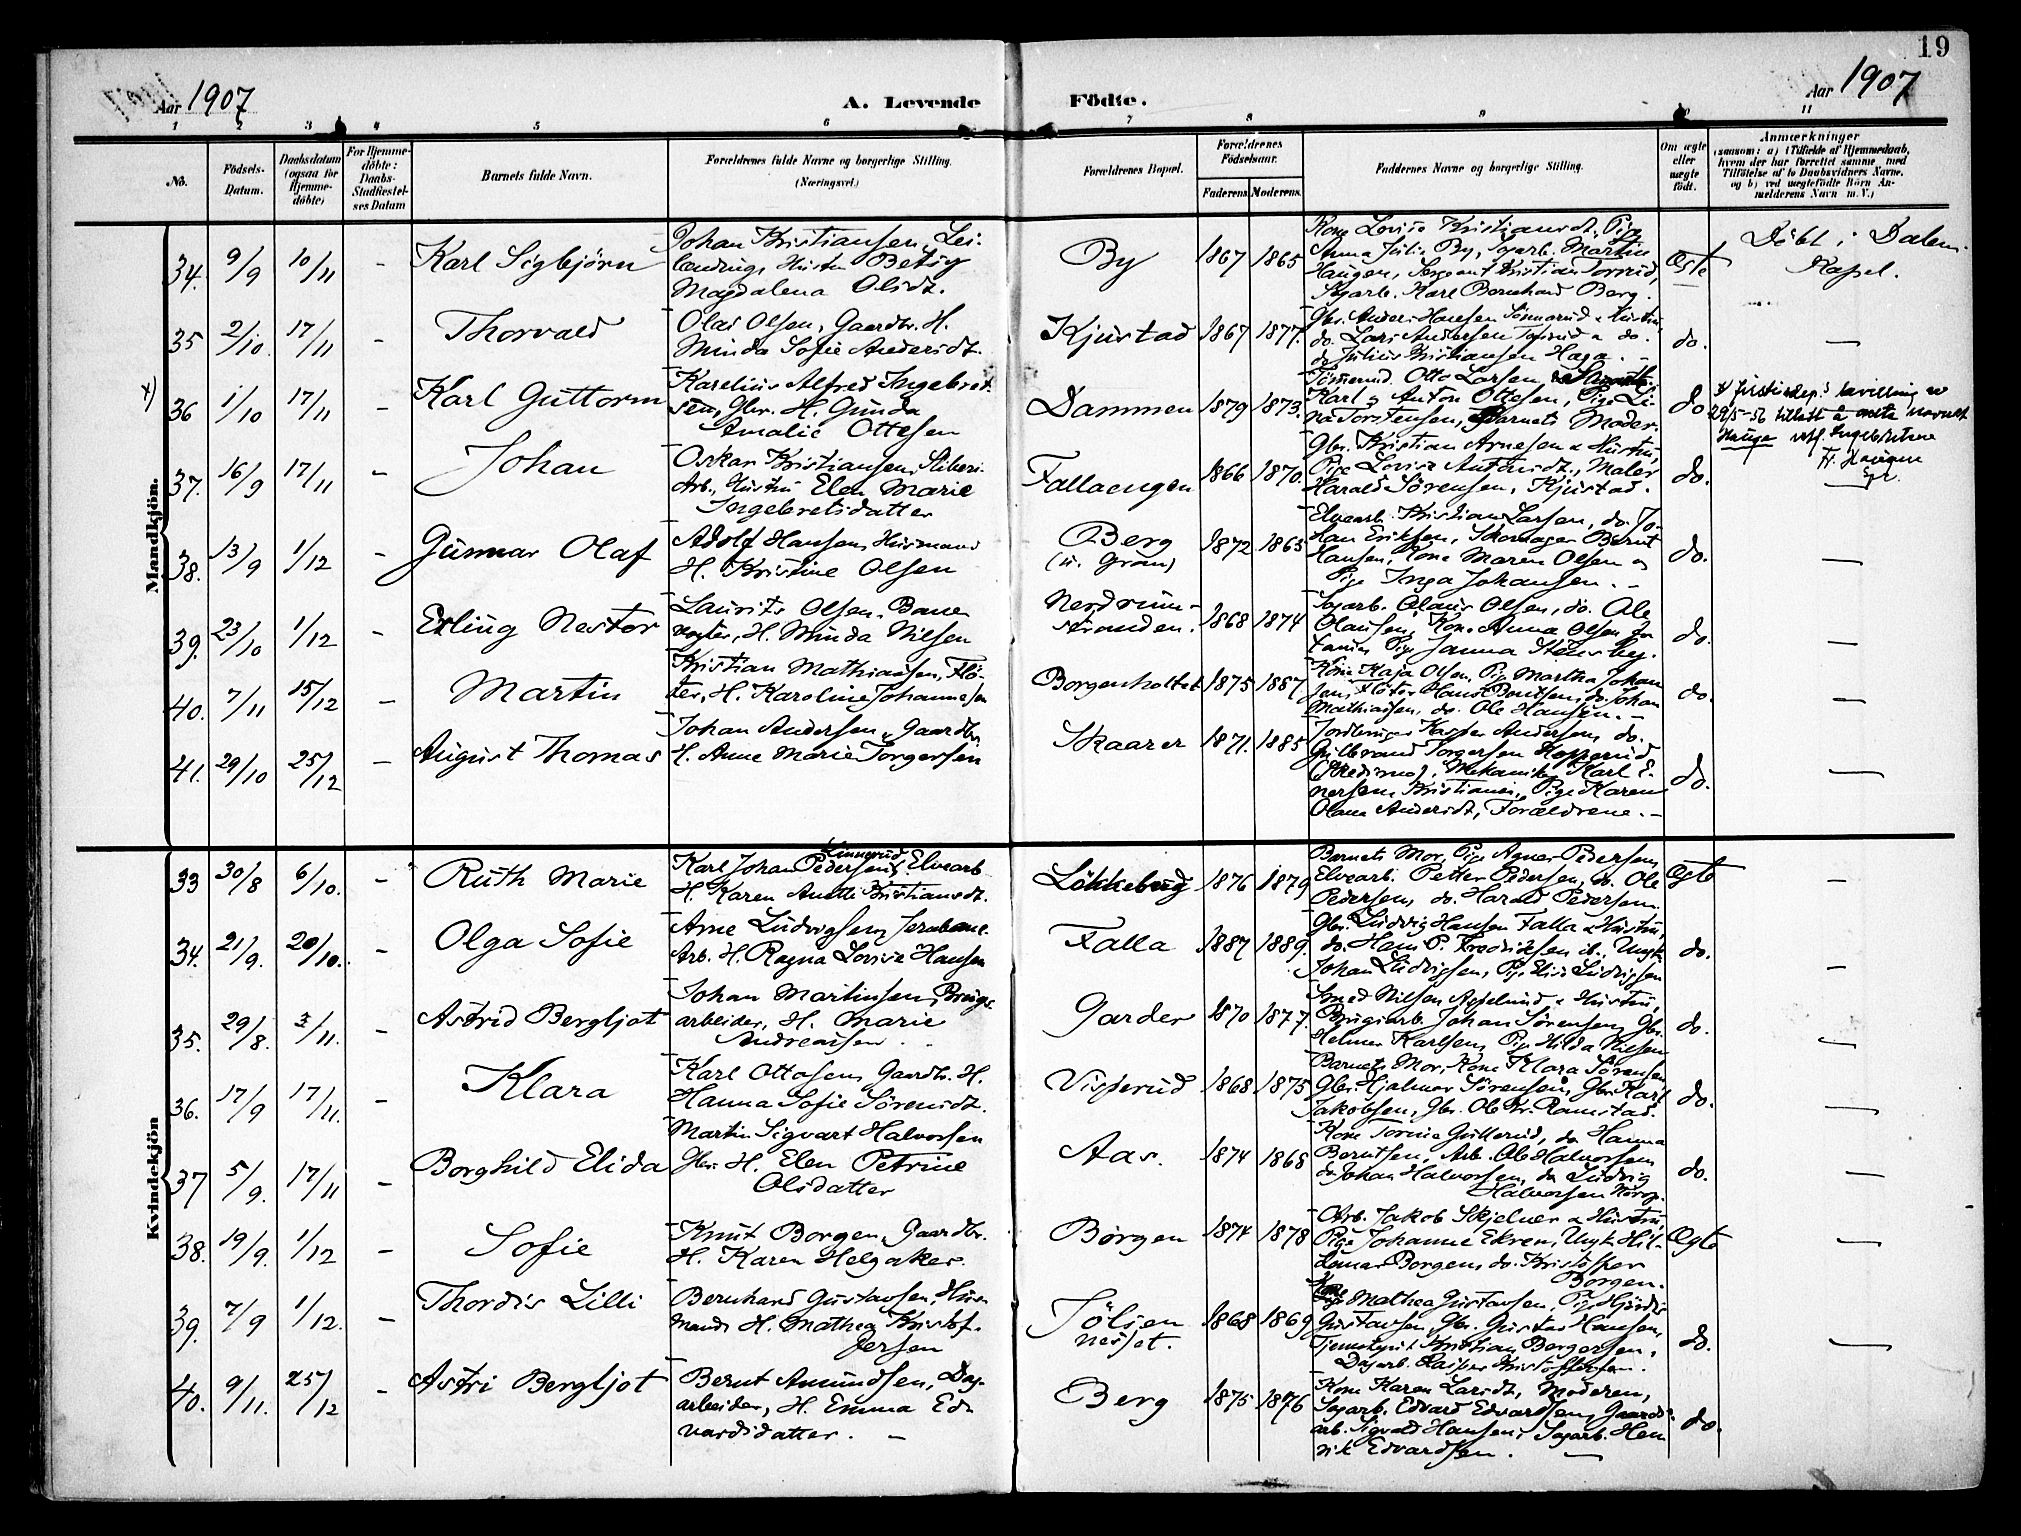 19
Aar 1907
A. Levende Födte.
Aar 1907
1 2 3 4 5 6 7 8 9 11
No.
Födsels-Datum.
Daabsdatum (ogsaa for Hjemmedöbte)
For Hjemmedöbte: Daabs-Stadfæstelses Datum
Barnets fulde Navn.
Forældrenes fulde Navne og borgerlige Stilling.
(Næringsvei.)
Forældrenes Bopæl.
Forældrenes Födselsaar.
Faderens. Moderens.
Faddernes Navne og borgerlige Stilling.
Om ægte eller uægte födt.
Anmærkninger
(saasom: a) i Tilfælde af Hjemmedaab, hvem der har forrettet samme, med Tilföielse af to Daabsvidners Navne, og b) ved uægtefödte Börn Anmelderens Navn m. V.)
Mandkjön.
34. 9/9 10/11 - Karl Sigbjörn
Johan Kristiansen, Lei-
lændring, Hustru Betsy
Magdalena Olsdt.
By 1867 1865
Kone Lovise Kristiansdt, Pige
Anna Julie By, Sagarb. Martin
Haugen, Sergeant Kristian
Sagarb. Karl Bernhard Berg.
Ægte
Döbt i Dalen
Kapel.
35 2/10 17/11 - Thorvald
Olaf Olsen, Gaardbr. H.
Minda Sofie Andersdt.
Kjustad 1867 1877.
Gbr. Anders Hansen & Hustru,
do. Lars Andersen & do.
do Julius Kristiansen Haga. -
do. —
x)
36 1/10 17/11 - Karl Guttorm
Karelius Alfred Ingebret-
sen, Gbr. H. Gunda
Amalie Ottesen
Dammen 1879 1873.
Otto Larsen,
Karl & Anton Ottesen, Pige Li-
na Torstensen, Barnets Moder.
do
x) justisdep.s bevilling av
29/5-56 tillatt å anta navnet
Haugen istf. Ingebretsen
37. 16/9 17/11 - Johan
Oskar Kristiansen, Sliberi-
Arb., Hustru Elen Marie
Ingebretsdatter
Fallaengen 1866 1870.
Gbr. Kristian Arnesen & Hustru,
Pige Lovise Antonsdt., Maler
Harald Sörensen, Kjustad.
do. —
38. 13/9 1/12 - Gunnar Olaf
Adolf Hansen, Husmand
H. Kristine Olsen
Berg
(u. Gran)
1872 1865
Elvearb. Kristian Larsen, do. Jo-
han Eriksen, Skomager Bernt
Hansen, Kone Maren Olsen &
Pige Inga Johansen. -
do. —
39. 23/10 1/12 - Erling Nestor
Laurits Olsen, Bane-
vogter, H. Minda Nilsen
Nerdrum-
stranden. 1868 1874
Sagarb. Olaus Olsen, do. Ole
Olausen, Kone Anna Olsen
Pige Janna
do. —
40. 7/11 15/12 - Martin
Kristian Mathiassen, Flö-
ter, H. Karoline Johannesen
Borgenholtet 1875 1887
Kone Kaja Olsen, Pige Martha Johan
sen, Flöter Hans Berntsen, do. Johan
Mathiassen, do. Ole Hansen. -
do. —
41. 29/10 25/12 - August Thomas
Johan Andersen, Gaardbr.
H. Anne Marie Torgersen
Skaarer 1871. 1885
Jordbruger Kasper Andersen, do.
Gulbrand Torgersen
(Skedsmo), Mekaniker Karl E-
nersen, Kristiania, Pige Karen
Olava Andersdt, Forældrene. -
do. —
Kvindekjön
33 30/8 6/10. - Ruth Marie
Karl Johan Pedersen, Elvearb
H. Karen Anette Kristiansdt.
Lökkeberg 1876 1879
Barnets Mor, Pige Agnes Pedersen,
Elvearb. Petter Pedersen, do. Ole
Pedersen, do. Harald Pedersen.
Ægte -
34. 21/9. 20/10. - Olga Sofie
Arne Ludvigsen, Jernbane-
Arb. H. Ragna Lovise Hansen
Falla 1887 1889.
Gbr. Ludvig Hansen Falla & Hustru,
do. Hans P. Fredriksen ib., Ungk.
Johan Ludvigsen, Pige Elise Ludvigsen
do. —
35. 29/8. 3/11. - Astrid Bergljot
Johan Martinsen, Brugs-
arbeider, H. Marie
Andreassen.
Garder 1870 1877.
Nilsen & Hustru,
Brugsarb. Johan Sörensen, Gbr.
Helmer Karlsen, Pige Hilda Nilsen
do. —
36. 17/9 17/11. - Klara
Karl Ottosen, Gaardbr. H.
Hanna Sofie Sörensdt.
Visperud 1868 1875
Barnets Mor, Kone Klara Sörensen,
Gbr. Hjalmar Sörensen, Gbr. Karl
Jakobsen, Gbr. Ole Kr. Ramstad.
do. —
37 5/9. 17/11 - Borghild Elida
Martin Sigvart Halvorsen
Gbr. H. Elen Petrine
Olsdatter
Aas. 1874 1868
Kone Torine Gullerud, do Hanna
Berntsen, Arb. Ole Halvorsen,
do Johan Halvorsen, do Ludvig
Halvorsen
do. —
38. 19/9. 1/12 - Sofie
Knut Borgen, Gaardbr.
H. Karen Helgaker.
Börgen 1874 1878
Arb. Jakob Skjelver & Hustru,
Pige Johanne Ekren, Ungk. Hil-
demar Borgen, do. Kristoffer
Borgen.
Ægte —
39. 7/9 1/12. - Thordis Lilli
Bernhard Gustavsen, Hus-
mand, H. Mathea Kristof-
fersen
Jölsen
nesset. 1868 1869
Kone Mathea Gustavsen, Pige Hjördis
Gustavsen, Gbr. Gustav Hansen,
Tjenestegut Kristian Bergersen,
Dagarb. Kasper Kristoffersen.
do. —
40. 9/11. 25/12 - Astri Bergljot
Bernt Amundsen, Dag-
arbeider, H. Emma Ed-
vardsdatter. -
Berg 1875 1876
Kone Karen Larsdt, Moderen,
Sagarb. Edvard Edvardsen, Gaards-
arb. Sigvald Hansen, Sagarb. Hen-
rik Edvardsen. —
do.